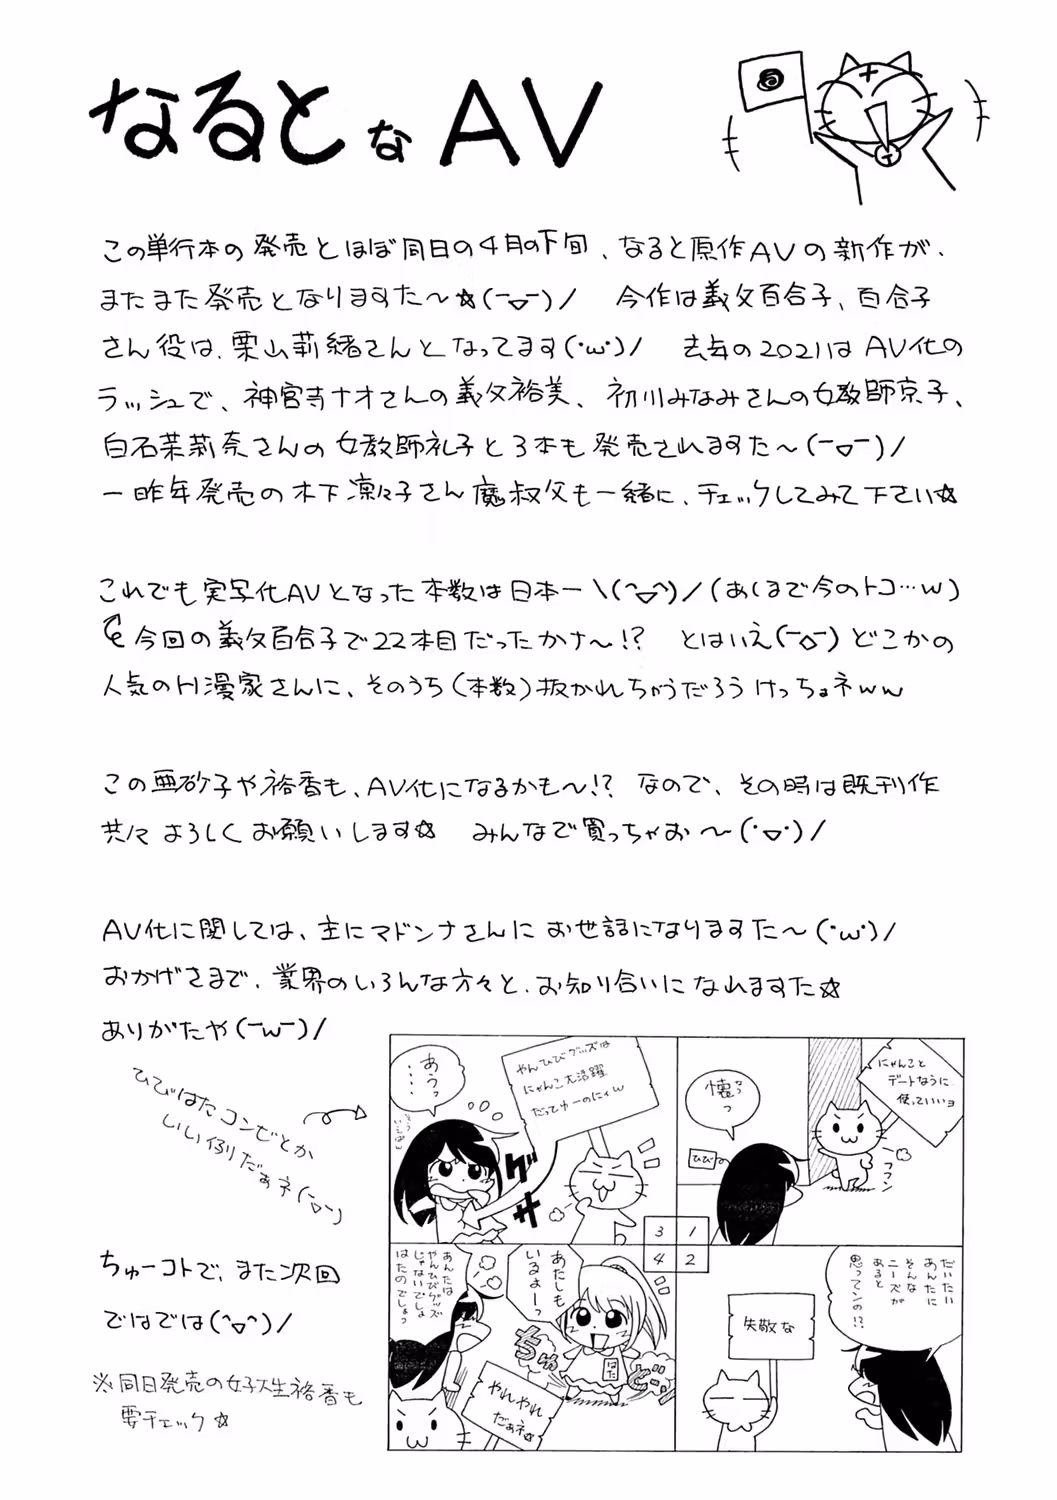 なるとなAV
この単行本の発売とほぼ同日の4月の下旬、なると原作AVの新作が、
またまた発売となりますた〜☆(ー▽ー)/ 今作は義父百合子、百合子
さん役は、栗山莉緒さんとなってます(・ω・)/ 去年の2021はAV化の
ラッシュで、神宮寺ナオさんの義父裕美、初川みなみさんの女教師京子、
白石茉莉奈さんの女教師礼子と3本も発売されますた〜(ー▽ー)/
一昨年発売の木下凛々子さん魔叔父も一緒に、チェックしてみて下さい☆
これでも実写化AVとなった本数は日本一\(^▽^)/(あくまで今のトコ…w)
今回の義父百合子で22本目だったかナ〜!? とはいえ(ー▽ー)どこかの
人気のH漫家さんに、そのうち(本数)抜かれちゃうだろうけっちょネww
この亜砂子や裕香も、AV化になるかも〜!? なので、その時は既刊作
共々よろしくお願いします☆ みんなで買っちゃお〜(・▽・)/
AV化に関しては、主にマドンナさんにお世話になりますた〜(・ω・)/
おかげさまで、業界のいろんな方々と、お知り合いになれますた☆
ありがたや(ーwー)/
ひびはたコンビとか
いい例だぁネ(ー▽ー)
ちゅーコトで、また次回
ではでは(^▽^)/
※同日発売の女子大生裕香も
要チェック☆
にゃんこと
デートなうに
使っていいヨ
懐っ
なつ
ひび
フフン
1
だいたい
あんたに
そんな
ニーズが
あると
思ってンの!?
失敬な
2
やんひびグッズは
にゃんこ大活躍
だってゆーのにィw
あうっ
・・・・
グサ
3
あたしも
いるよーっ
あんたは
やんひびグッズ
じゃないでしょ
はたのでしょっ
はた
ちゅ
ど
やれやれ
だぁネ☆
4